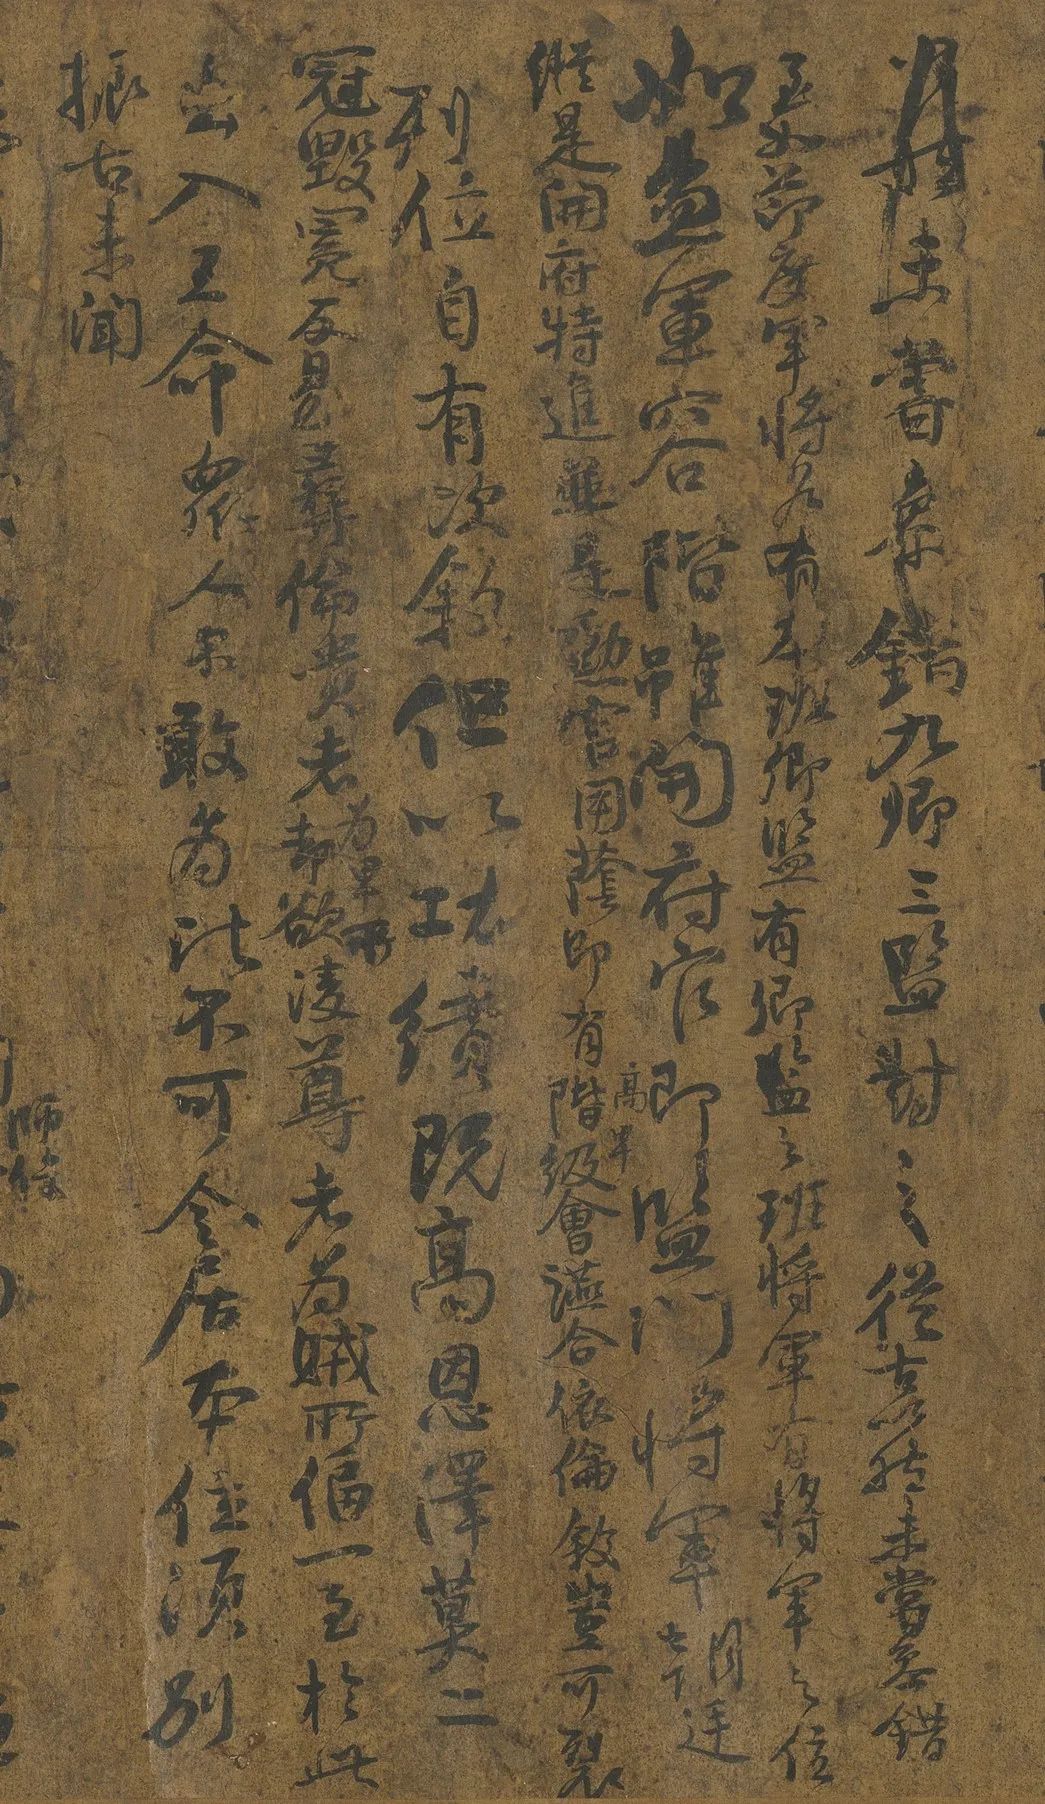 然未嘗參錯九卿三監對之從古以然未嘗參錯
至如節度軍將各有本班卿監有卿監之班將軍有將軍之位
如魚軍容階雖開府官即監門將軍朝廷
縱是開府特進並是勳官用蔭即有高卑階級會讌合依倫敘豈可裂
列位自有次敘但以功績既高恩澤莫二
冠毀冕反易彝倫貴者為卑所却欲凌尊者為賊所偪一至於此
出入王命眾人不敢為比不可令居本位須別
振古未聞
師保